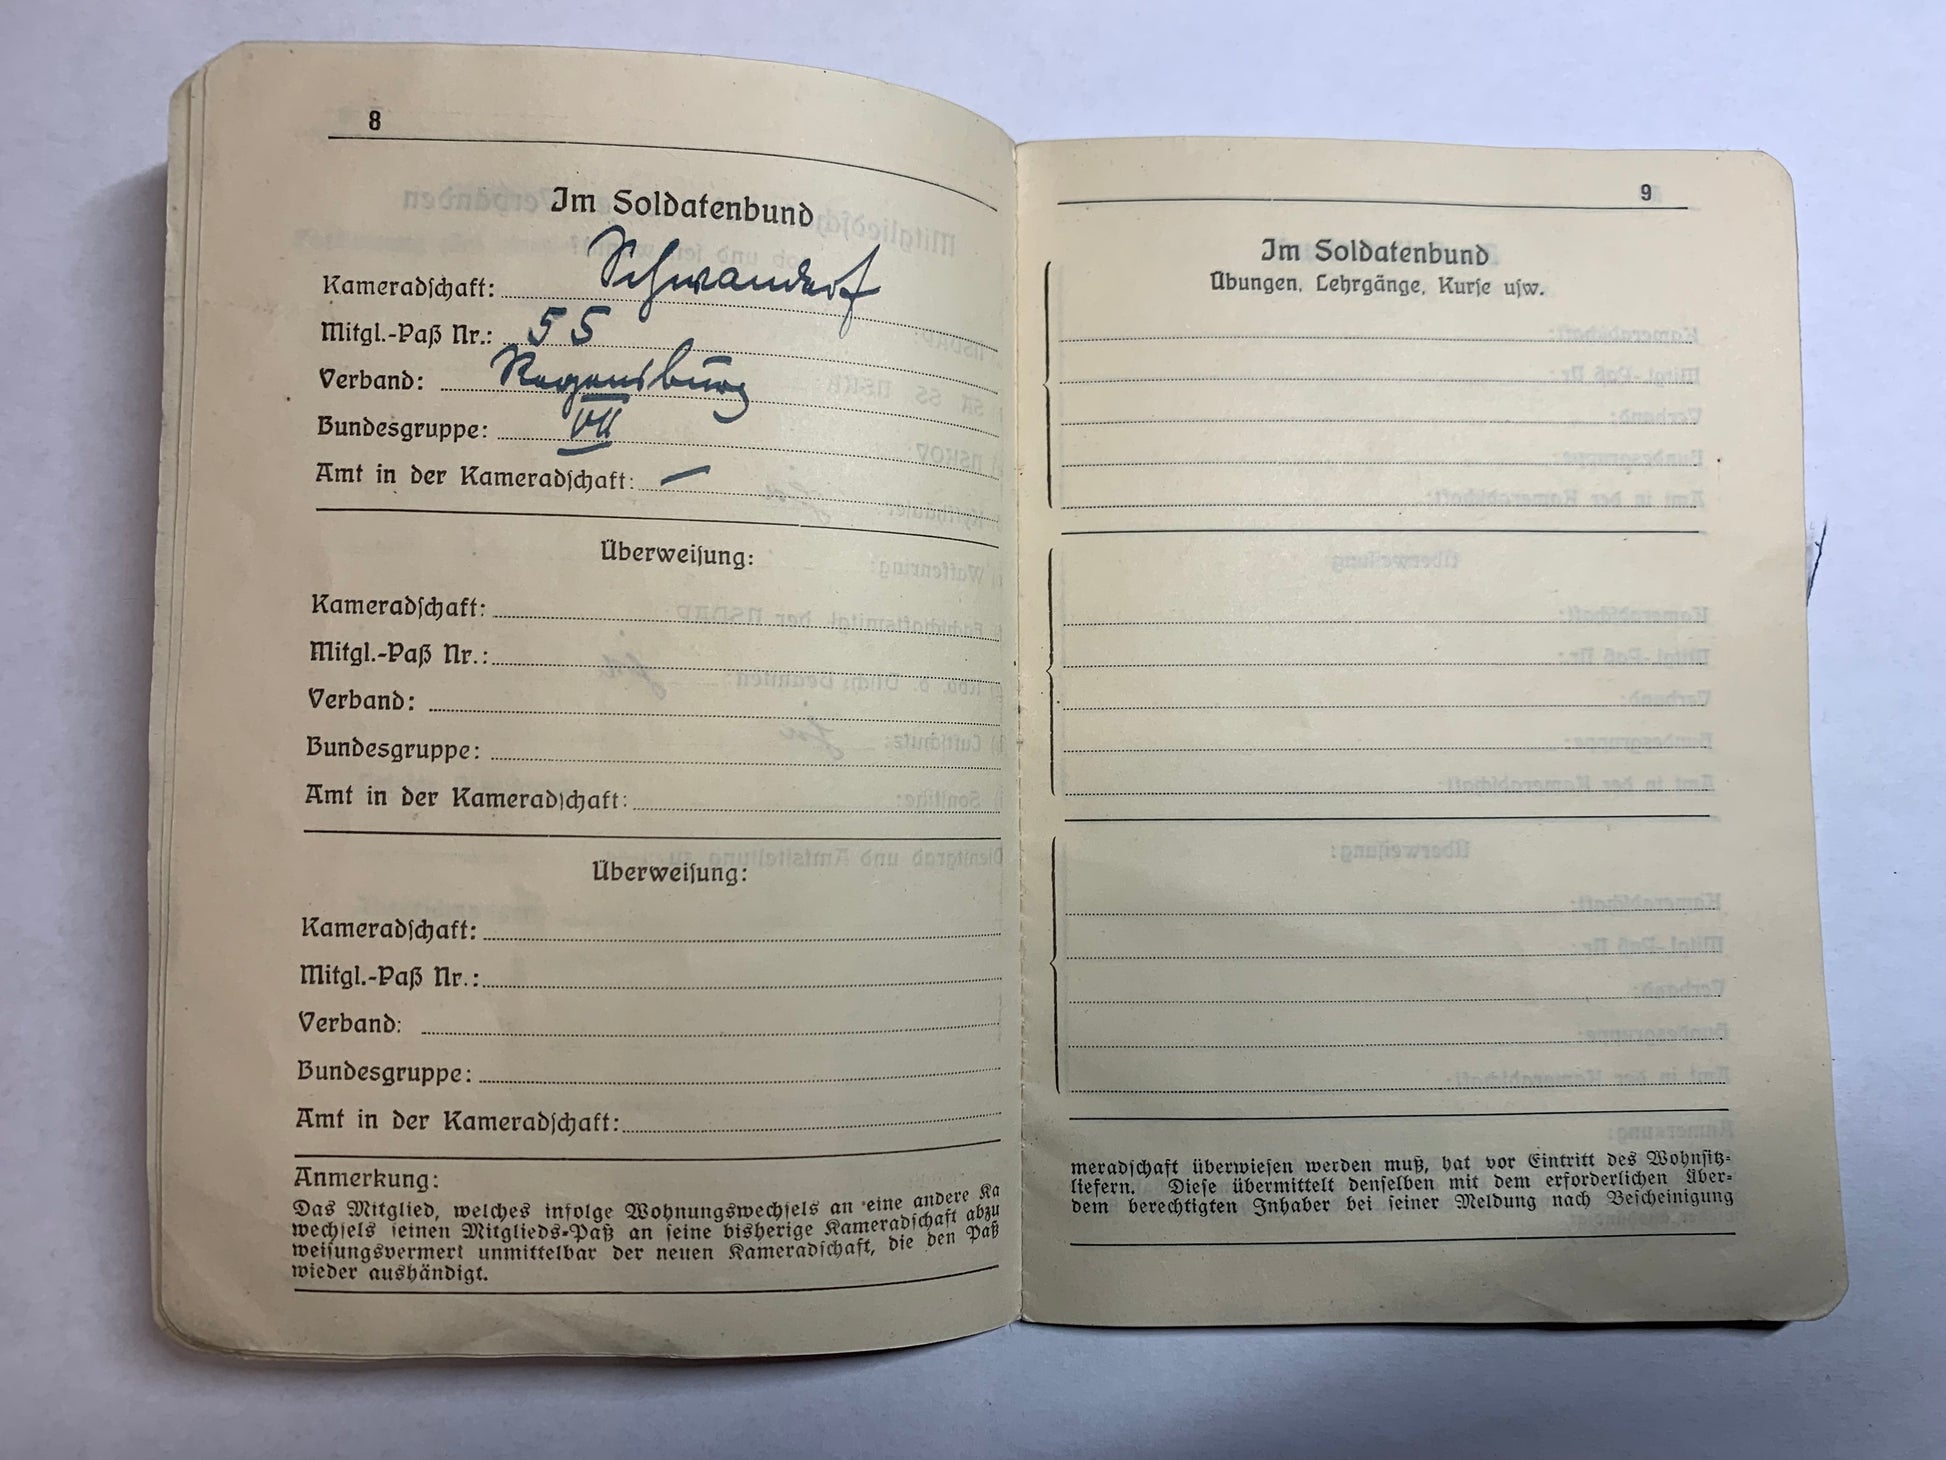 8
Im Soldatenbund
Kameradschaft: Schwandorf
Mitgl.-Paß Nr.: 55
Verband: Regensburg
Bundesgruppe: VII
Amt in der Kameradschaft: —
Überweisung:
Kameradschaft:
Mitgl.-Paß Nr.:
Verband:
Bundesgruppe:
Amt in der Kameradschaft:
Überweisung:
Kameradschaft:
Mitgl.-Paß Nr.:
Verband:
Bundesgruppe:
Amt in der Kameradschaft:
Anmerkung:
Das Mitglied, welches infolge Wohnungswechsels an eine andere Ka
wechsels seinen Mitglieds-Paß an seine bisherige Kameradschaft abzu
weisungsvermerk unmittelbar der neuen Kameradschaft, die den Paß
wieder aushändigt.
9
Im Soldatenbund
Übungen, Lehrgänge, Kurse usw.
meradschaft überwiesen werden muß, hat vor Eintritt des Wohnsitz-
liefern. Diese übermittelt denselben mit dem erforderlichen Über-
dem berechtigten Inhaber bei seiner Meldung nach Bescheinigung